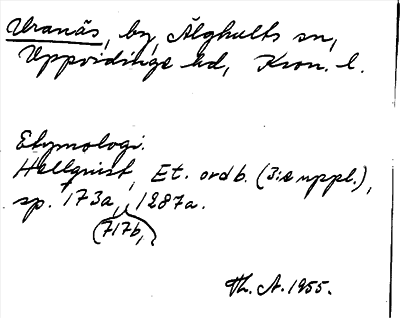 Uranäs, by, Älghults sn,
Uppvidinge hd, Kron. l.
Etymologi.
Hellquist, Et. ordb. (3:e uppl.),
sp. 173a, 1287a.
(717b,)
Th. A. 1955.